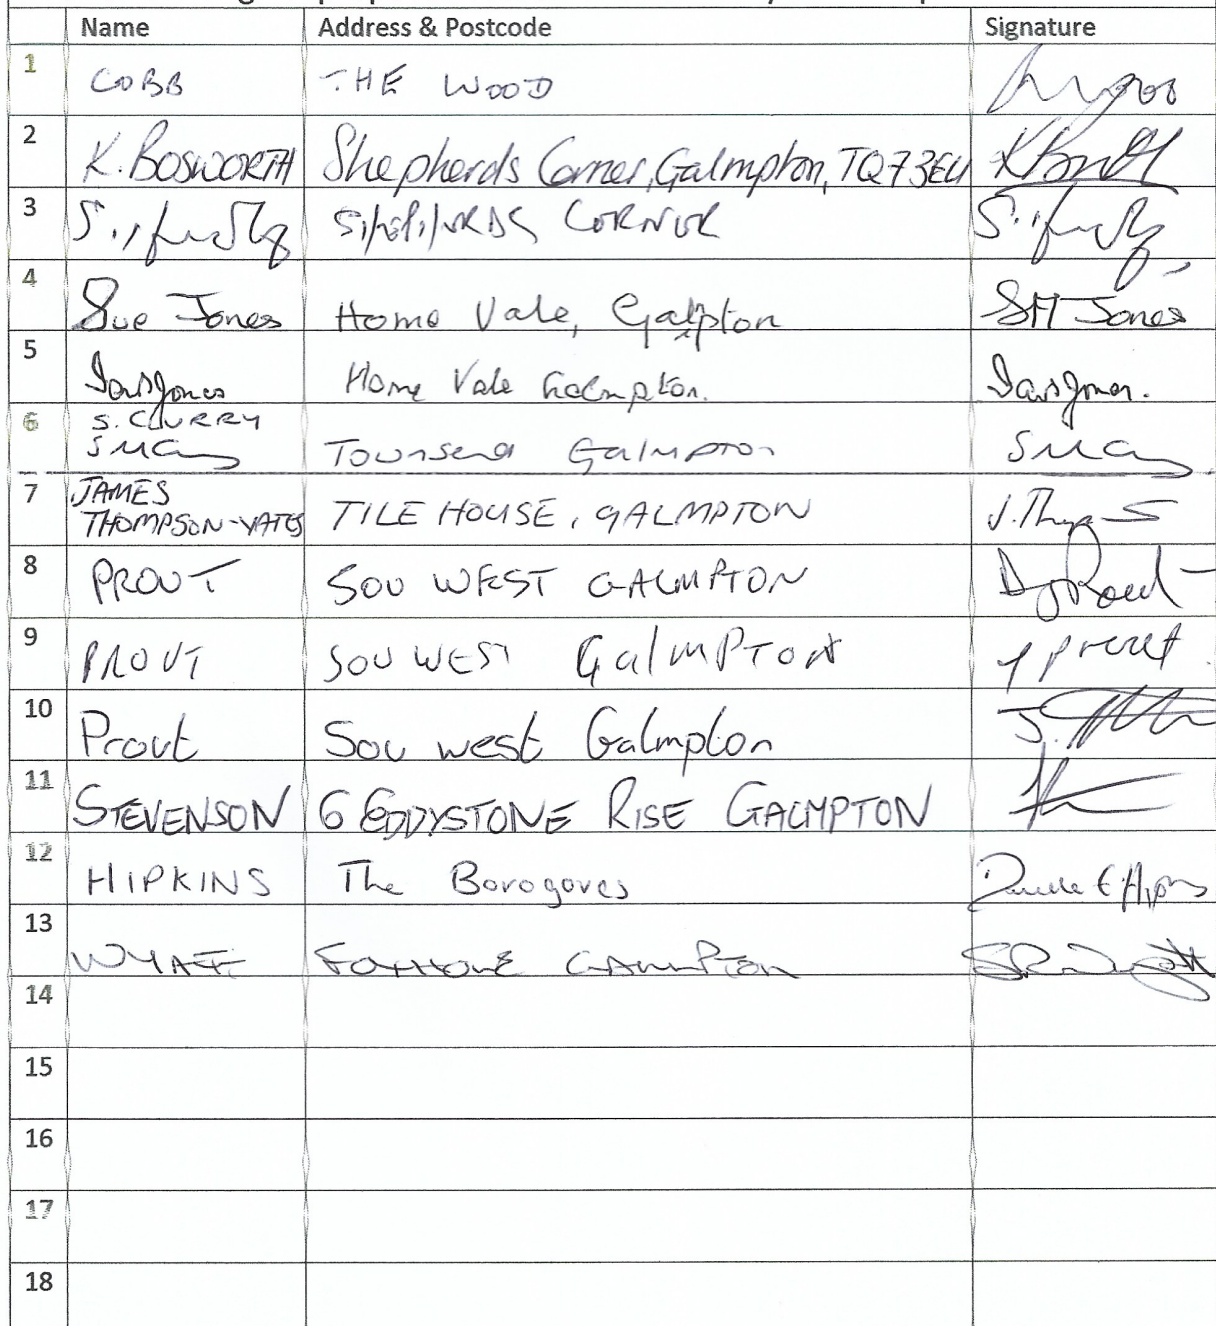 Name Address & Postcode Signature
1 COBB THE WOOD
2 K. BOSWORTH Shepherds Corner, Galmpton, TQ7 3EU
3 CORNER
4 Sue Jones Home Vale, Galmpton SM Jones
5 Jones Home Vale Galmpton. Jones.
6 S. CURRY
Townsend Galmpton
7 JAMES
THOMPSON-YATES TILE HOUSE, GALMPTON
8 PROUT SOU WEST GALMPTON
9 PROUT SOU WEST GalmPTON Prout
10 Prout Sou west Galmpton
11 STEVENSON 6 EDDYSTONE RISE GALMPTON
12 HIPKINS The Borogoves
13 WYATT FOXHOLE GALMPTON
14
15
16
17
18